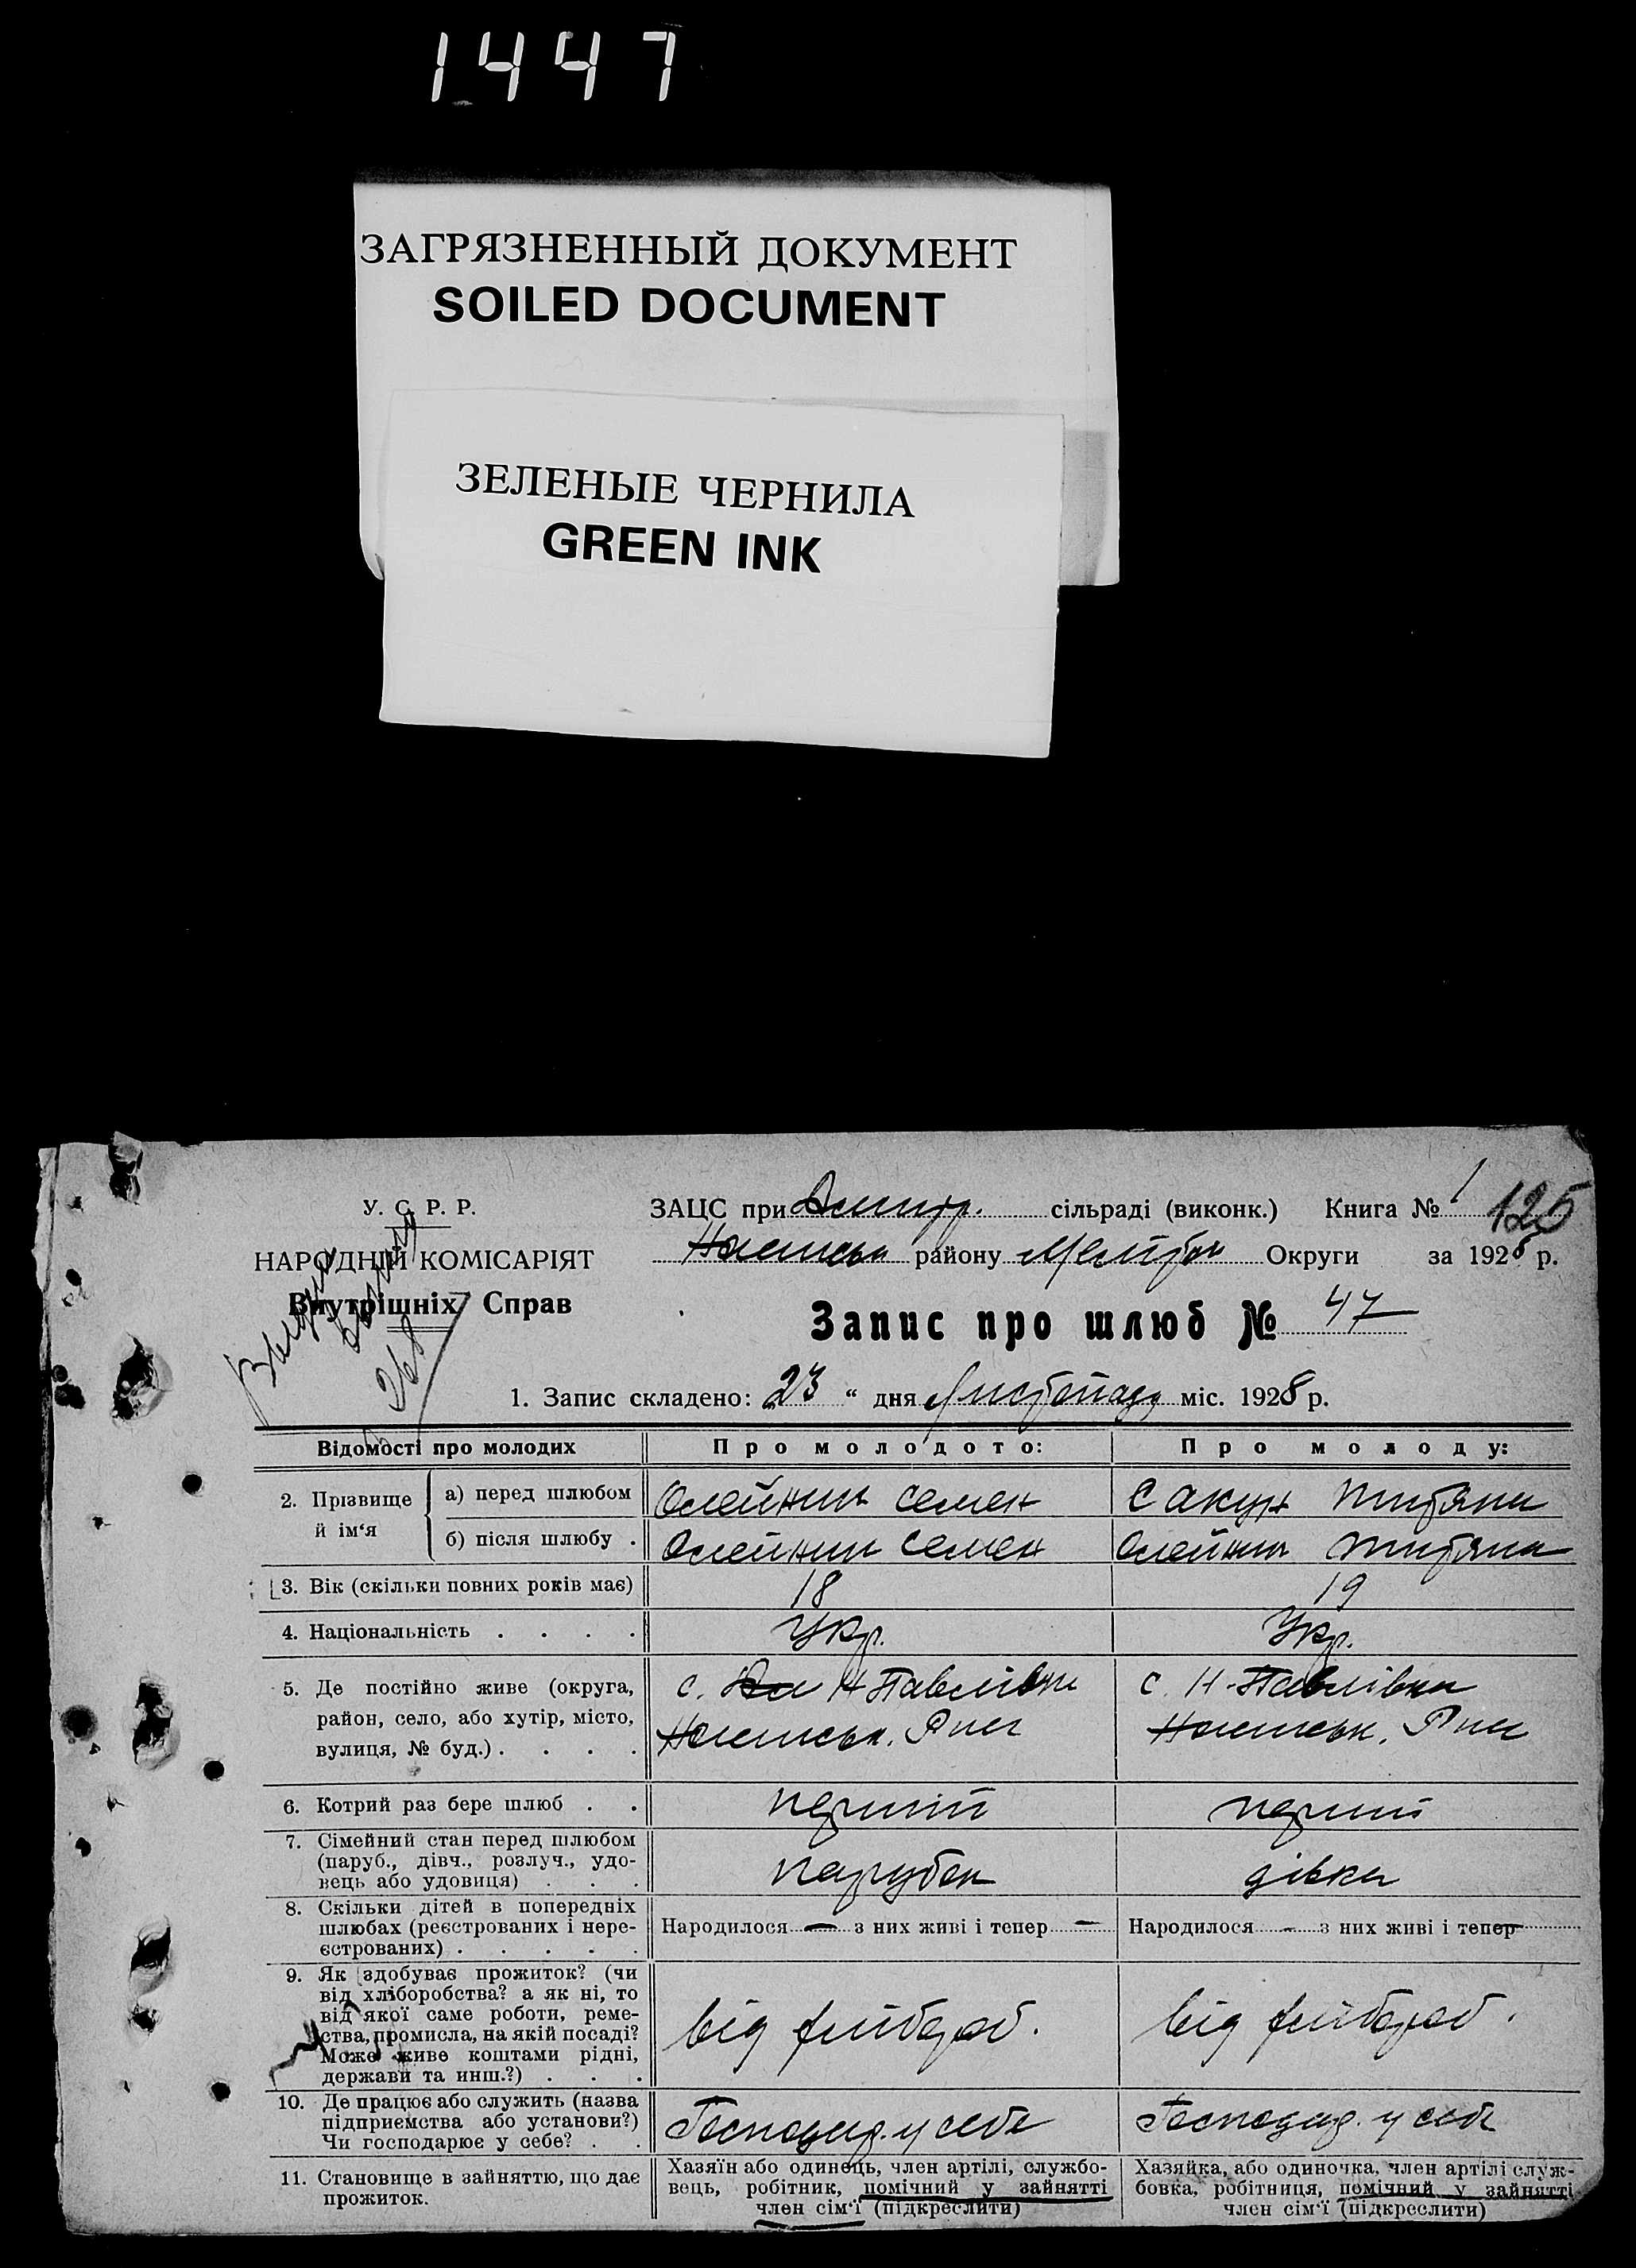 1447
ЗАГРЯЗНЕННЫЙ ДОКУМЕНТ
SOILED DOCUMENT
ЗЕЛЕНЫЕ ЧЕРНИЛА
GREEN INK
У. С. Р. Р.
НАРОДНІЙ КОМІСАРІЯТ
Внутрішніх Справ
ЗАЦС при сільраді (виконк.) Книга № 1 125
району Округи за 1928 р.
Запис про шлюб № 47
1. Запис складено: 23 “ дня Листопаду міс. 1928 р.
Відомості про молодих
Про молодого:
Про молоду:
2. Прізвище й ім‘я
а) перед шлюбом Олейник Семен Сакун Титяна
б) після шлюбу . Олейник Семен Олейник Титяна
3. Вік (скільки повних років має) 18 19
4. Національність . . . . Укр. Укр.
5. Де постійно живе (округа, район, село, або хутір, місто, вулиця, № буд.) . . . .
с. Н Павлівки
с. Н-Павлівка
6. Котрий раз бере шлюб . . перший перший
7. Сімейний стан перед шлюбом
(паруб., дівч., розлуч., удо-
вець або удовиця) . . . парубок дівка
8. Скільки дітей в попередніх
шлюбах (реєстрованих і нере-
єстрованих) . . . . .
Народилося — з них живі і тепер —
Народилося — з них живі і тепер —
9. Як здобуває прожиток? (чи
від хліборобства? а як ні, то
від якої саме роботи, реме-
ства, промисла, на якій посаді?
Може живе коштами рідні,
держави та инш.?) . . .
від хлібороб. від хлібороб.
10. Де працює або служить (назва
підприємства або установи?)
Чи господарює у себе? . .
Господар. у себе Господар. у себе
11. Становище в зайняттю, що дає
прожиток.
Хазяїн або одинець, член артілі, службо-
вець, робітник, помічний у зайнятті
член сім‘ї (підкреслити)
Хазяйка, або одиночка, член артілі служ-
бовка, робітниця, помічний у зайнятті
член сім‘ї (підкреслити)